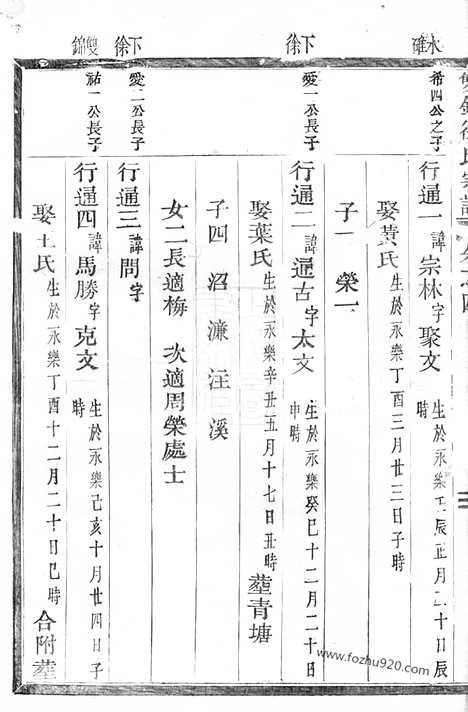 水碓
希四公之子
行通一諱宗林字聚文生於永樂壬辰正月二十日辰時
娶黃氏生於永樂丁酉三月廿三日子時
子一榮一
下徐
愛一公長子
行通二諱通古字太文生於永樂癸巳十二月二十日申時
娶葉氏生於永樂辛丑五月十七日丑時葬青塘
子四沼濂汪溪
女二長適梅次適周榮處士
下徐
愛二公長子
行通三諱問字
雙錦
祐一公長子
行通四諱馬勝字克文生於永樂己亥十月廿四日子時
娶王氏生於永樂丁酉十二月二十日巳時合附葬
www.fozhu920.com